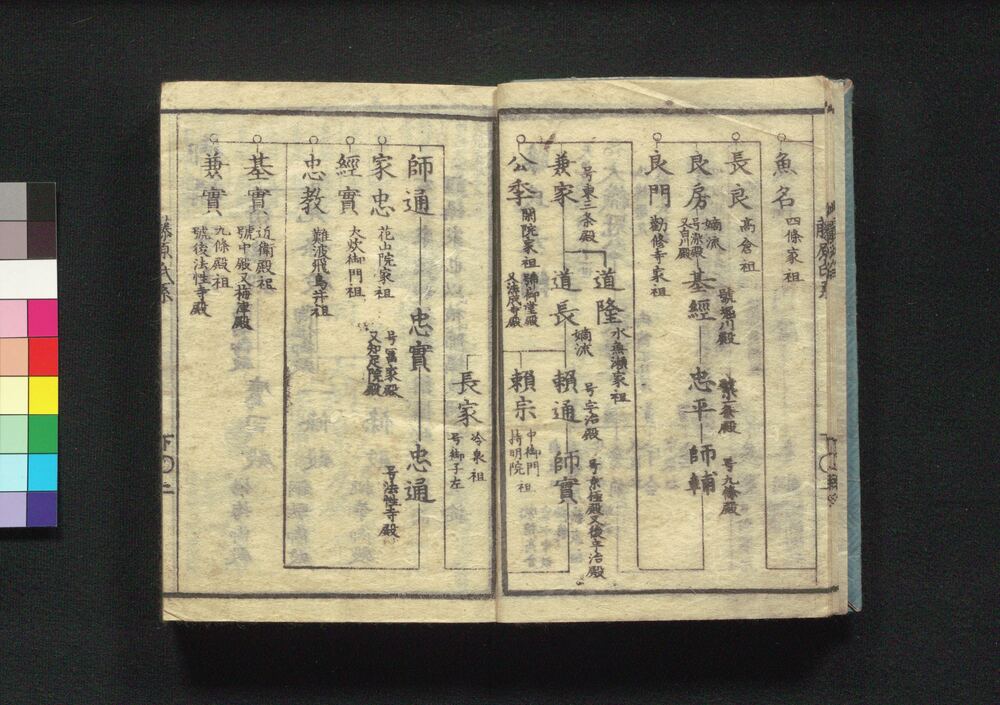 魚名
四條家祖
長良
高倉祖
良房
嫡流
号染殿
又白川殿
基經
號堀川殿
忠平
師輔
号九條殿
良門
勸修寺家祖
兼家
号東三条殿
道隆
水無瀬家祖
道長
嫡流
號御堂殿
頼通
号宇治殿
師實
号京極殿又後宇治殿
公季
閑院家祖
頼宗
中御門
持明院
祖
長家
冷泉祖
号御子左
師通
忠實
号冨家殿
又知足院殿
忠通
号法性寺殿
家忠
花山院家祖
經實
大炊御門祖
忠教
難波飛鳥井祖
基實
近衛殿祖
號中殿又梅津殿
兼實
九條殿祖
號後法性寺殿